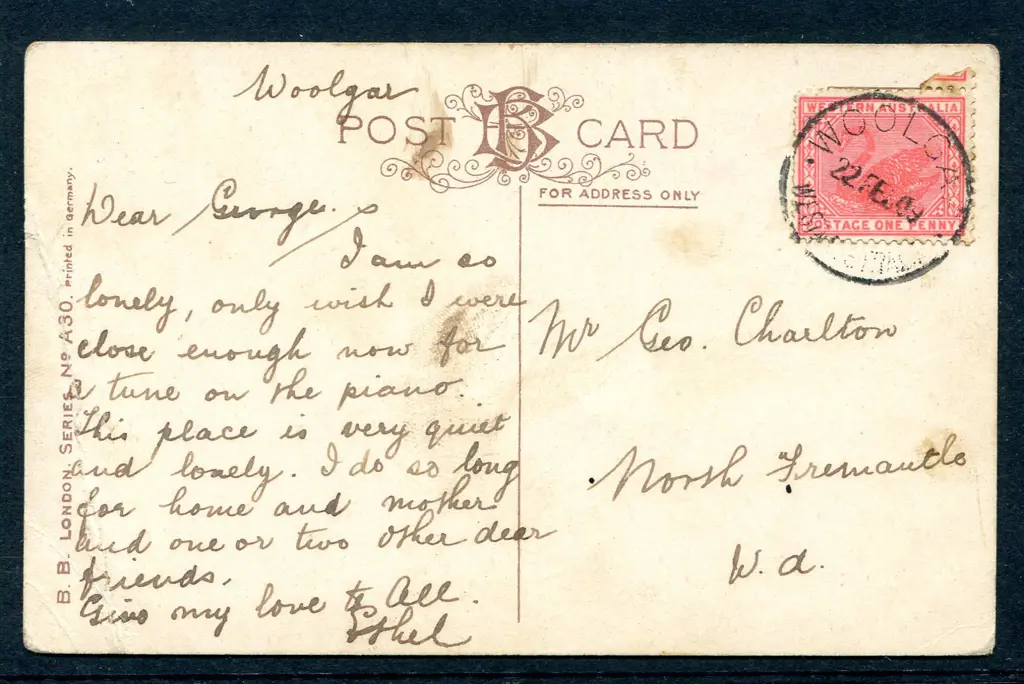 Woolgar
POST CARD
FOR ADDRESS ONLY
WESTERN AUSTRALIA
POSTAGE ONE PENNY
WOOLGA
22 FE 09
Dear George.
I am so
lonely, only wish I were
close enough now for
a tune on the piano.
This place is very quiet
and lonely. I do so long
for home and mother
and one or two other dear
friends.
Give my love to All.
Ethel
Mr Geo. Charlton
North Fremantle
W.A.
B. B. LONDON SERIES No A30. Printed in Germany.